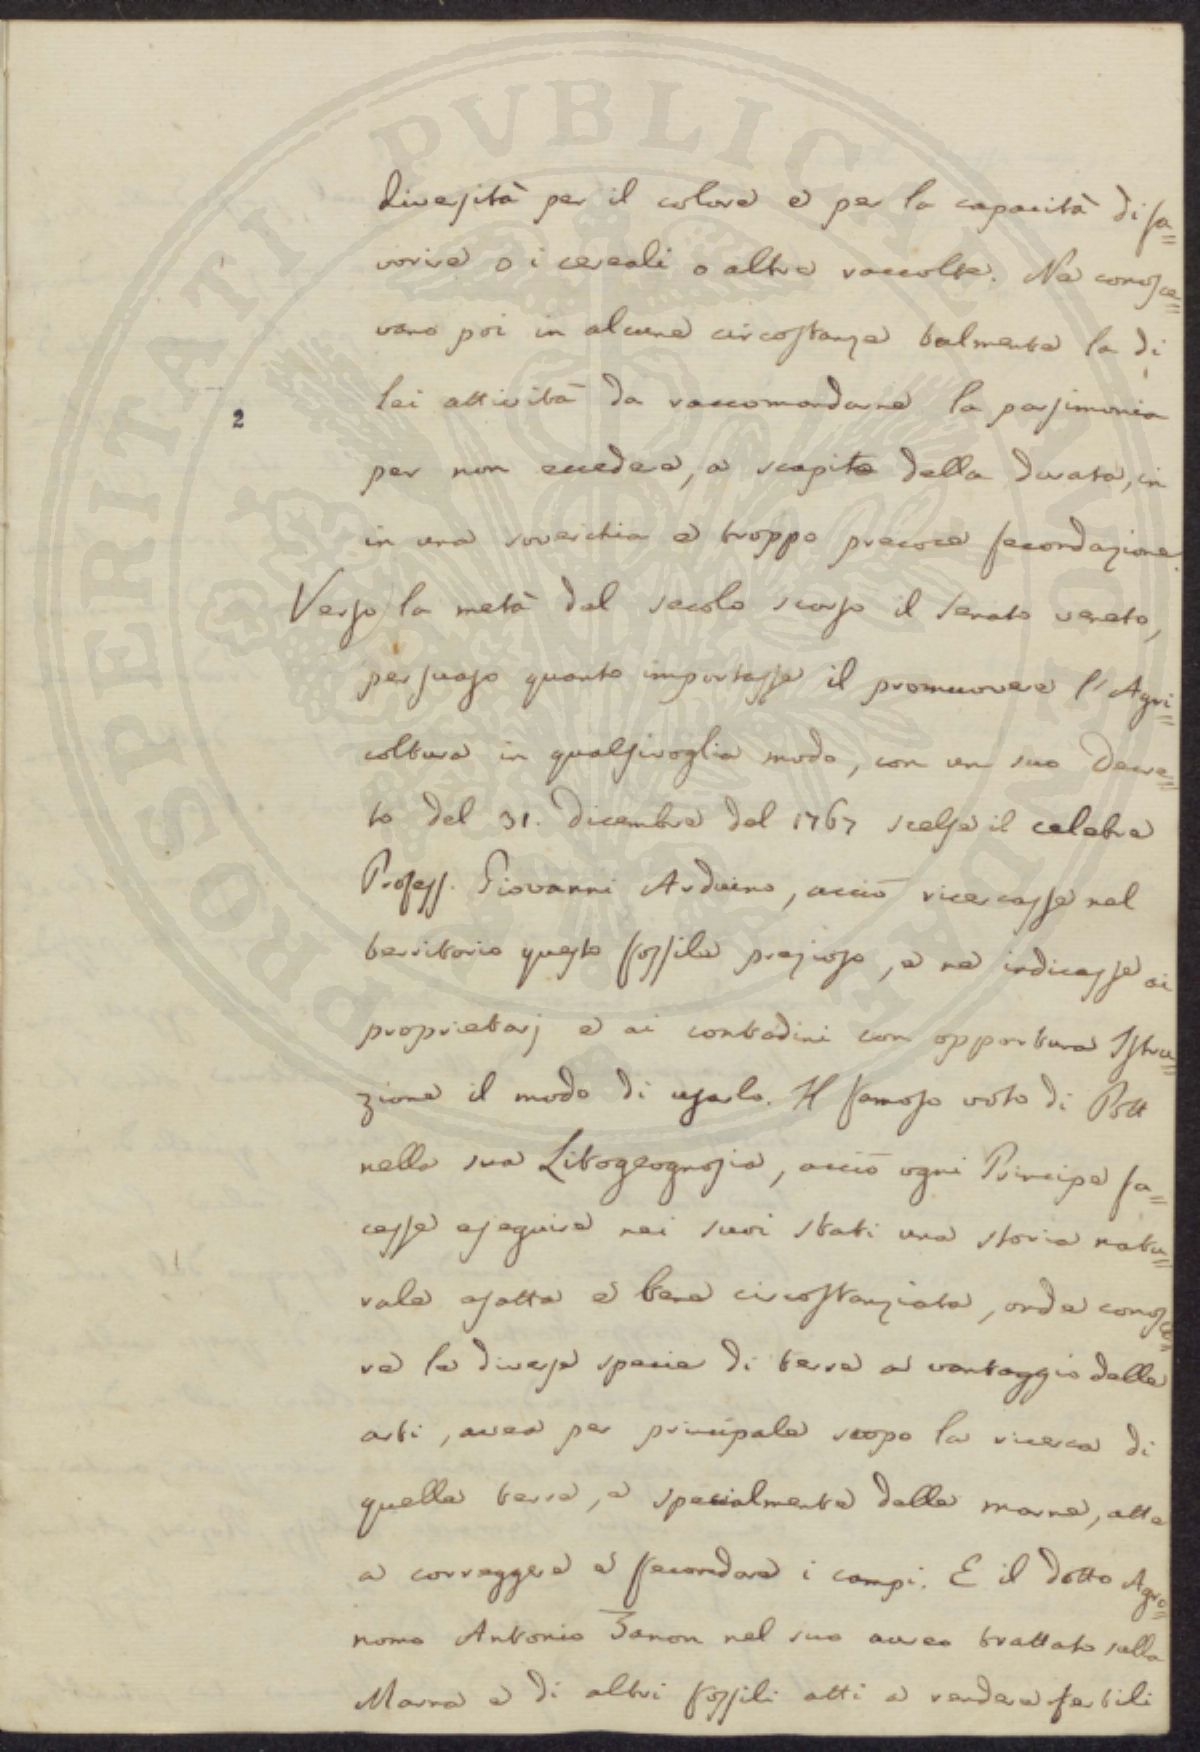 diversità per il colore e per la capacità di fa=
vorire o i cereali o altre raccolte. Ne conosce=
vano poi in alcune circostanze talmente la di
lei attività da raccomandarne la parsimonia
2
per non eccedere, a scapito della durata, in
in una soverchia e troppo precoce fecondazione.
Verso la metà del secolo scorso il Senato veneto,
persuaso quanto importasse il promuovere l'Agri=
coltura in qualsivoglia modo, con un suo Decre=
to del 31. Dicembre del 1767 scelse il celebre
Profess. Giovanni Arduino, acciò ricercasse nel
territorio questo fossile prezioso, e ne indicasse ai
proprietarj e ai contadini con opportuna Istru=
zione il modo di usarlo. Il famoso voto di Pott
nella sua Litogeognosia, acciò ogni Principe fa=
cesse eseguire nei suoi stati una storia natu=
rale esatta e bene circostanziata, onde conosce=
re le diverse specie di terre a vantaggio delle
arti, avea per principale scopo la ricerca di
quelle terre, e specialmente delle marne, atte
a correggere e fecondare i campi. E il dotto Agro=
nomo Antonio Zanon nel suo aureo trattato sulla
Marna e di altri fossili atti a rendere fertili
PROSPERITATI PVBLICAE